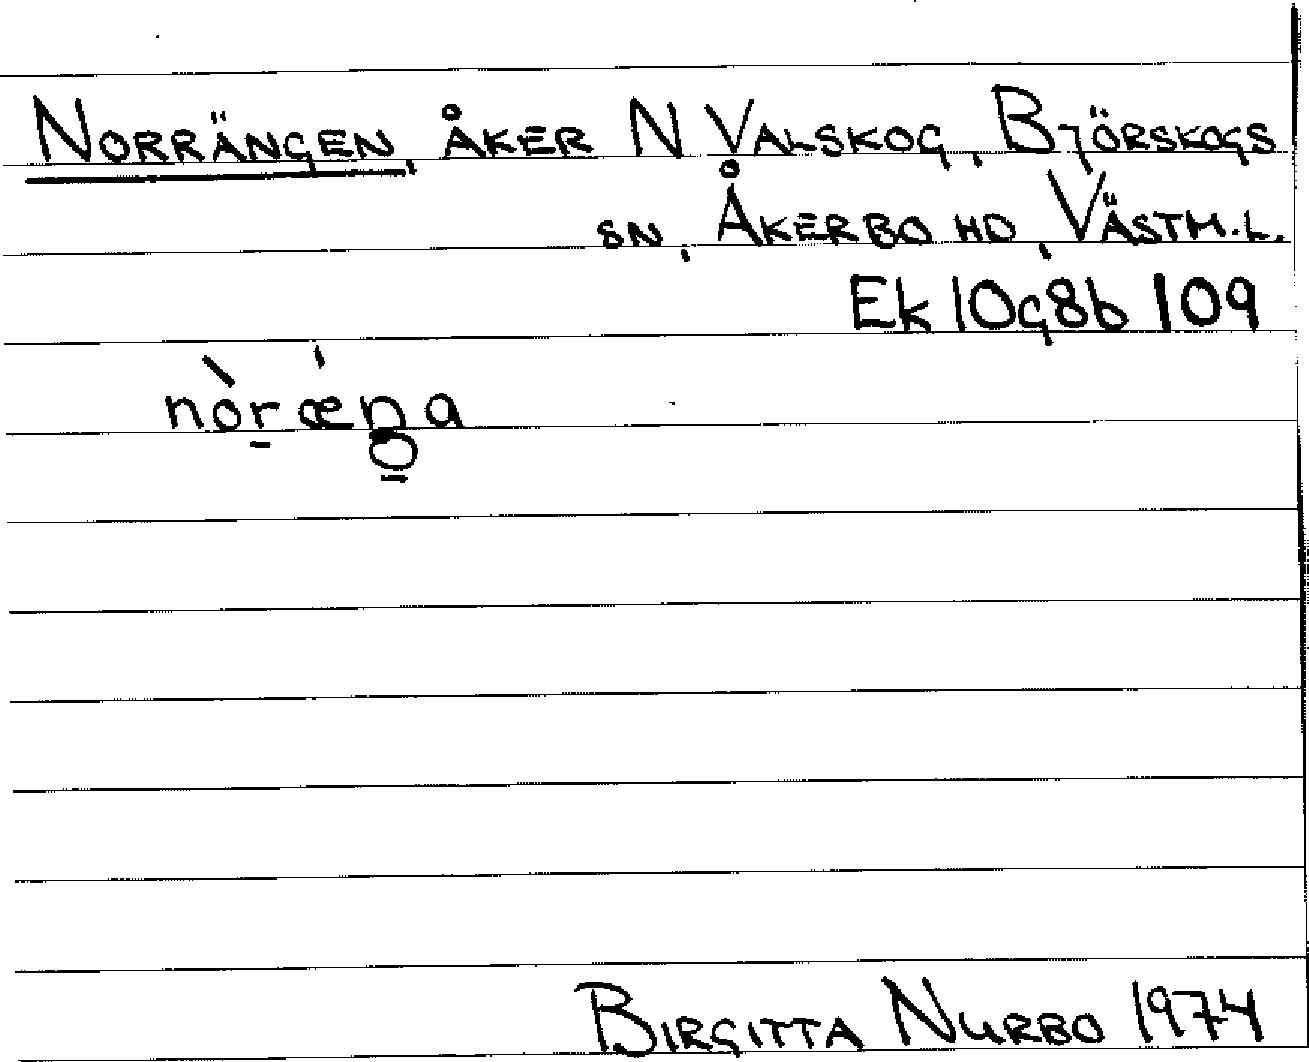 NORRÄNGEN, ÅKER N VALSKOG, BJÖRSKOGS
SN, ÅKERBO HD, VÄSTM.L.
Ek 10g8b 109
nòrǽŋa
BIRGITTA NURBO 1974